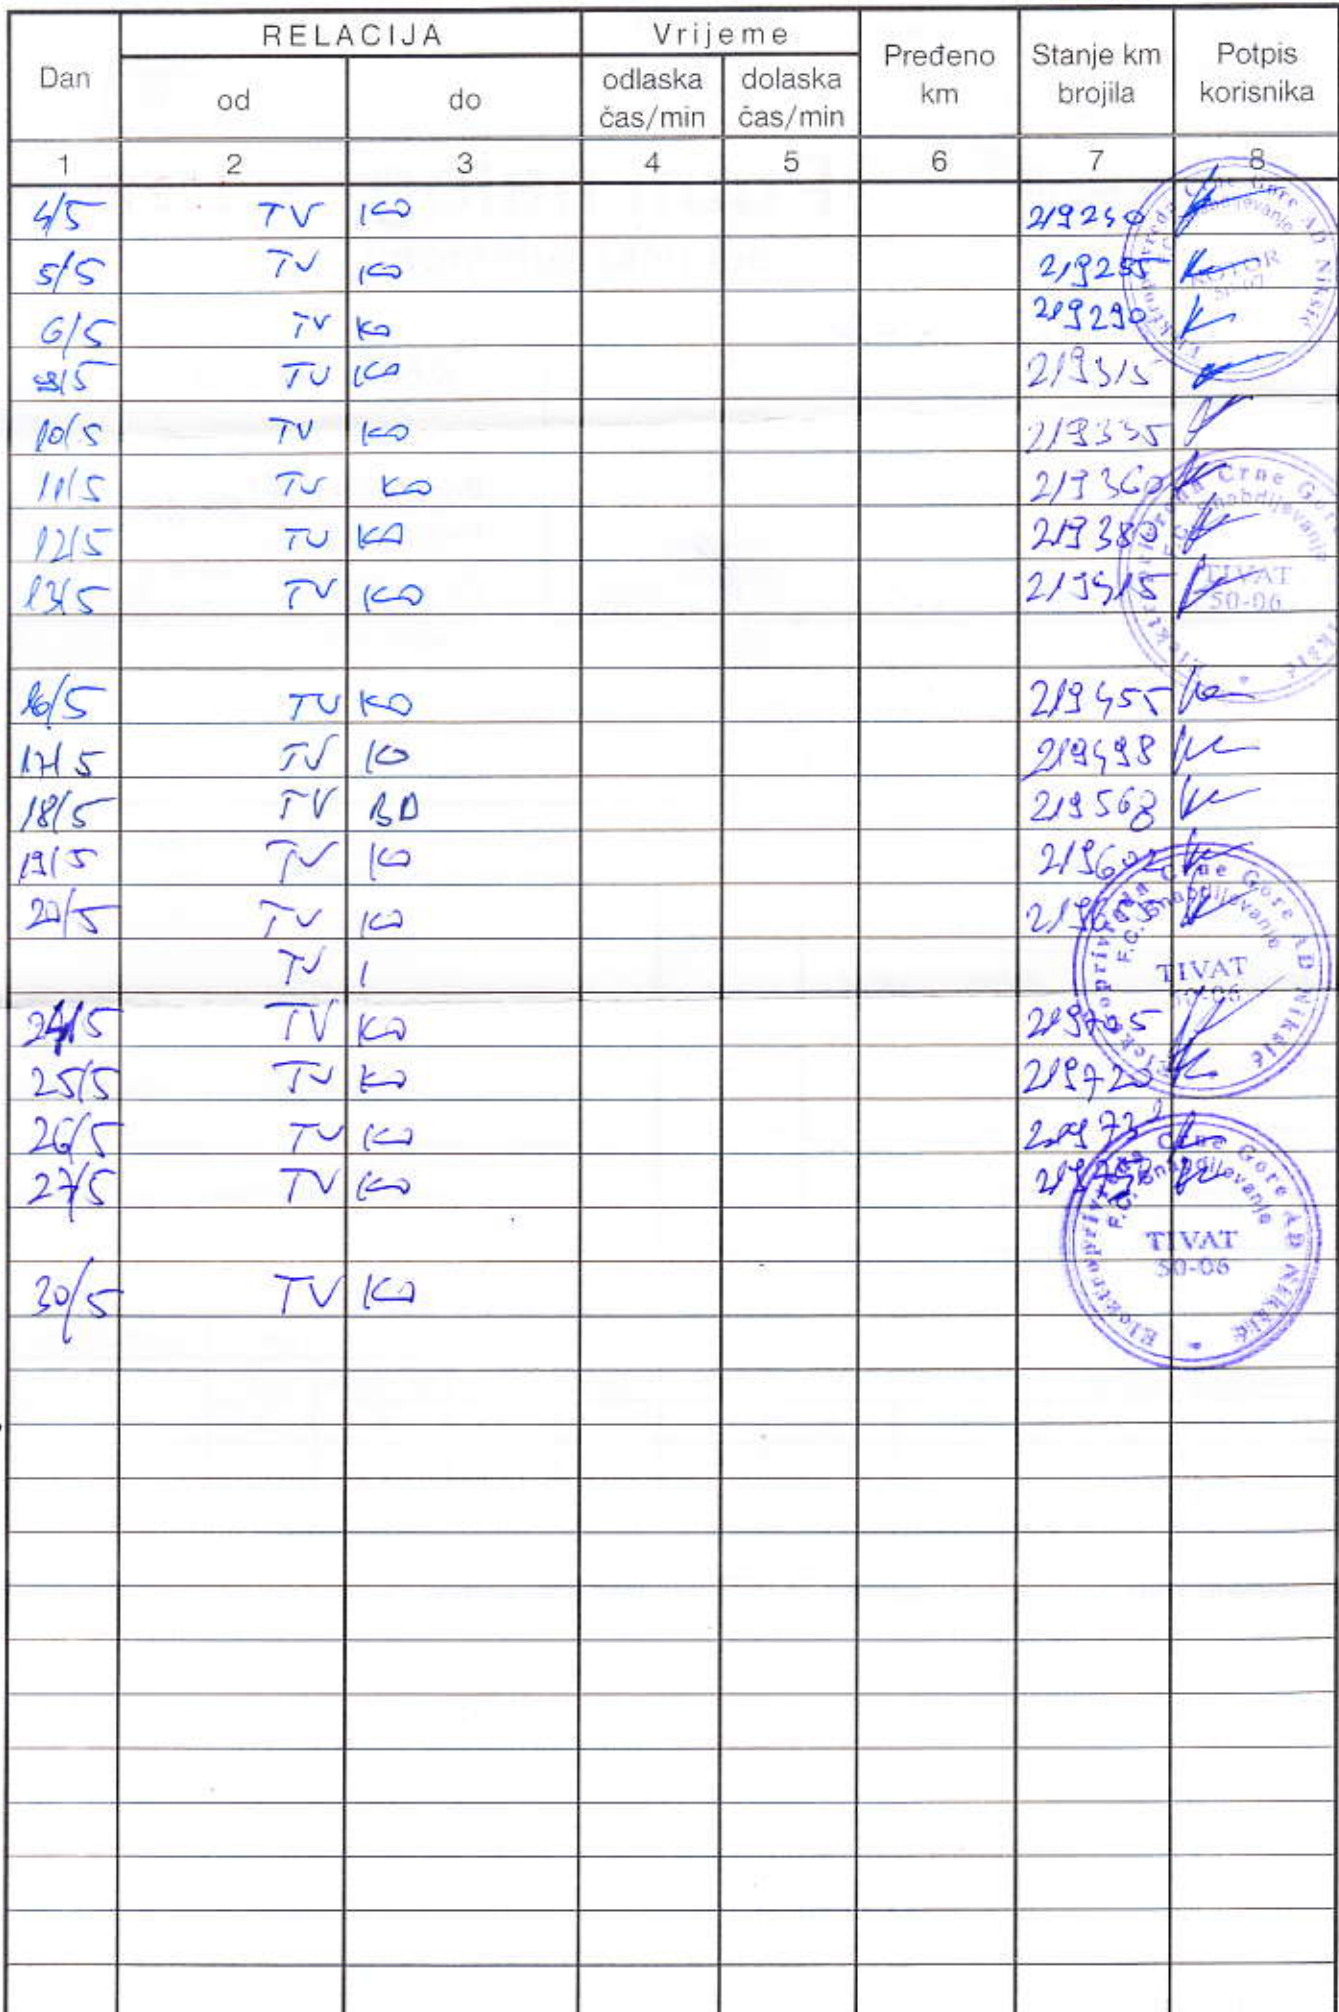 Dan RELACIJA Vrijeme Pređeno km Stanje km brojila Potpis korisnika
od do odlaska čas/min dolaska čas/min
1 2 3 4 5 6 7 8
4/5 TV KO 219240
5/5 TV KO 219255
6/5 TV KO 219290
TV KO 219315
10/5 TV KO 219335
11/5 TV KO 219360
12/5 TV KO 219380
13/5 TV KO 219415
16/5 TV KO 219455
17/5 TV KO 219498
18/5 TV BD 219568
19/5 TV KO
20/5 TV KO
TV
24/5 TV KO 219705
25/5 TV KO 219720
26/5 TV KO 219732
27/5 TV KO
30/5 TV KO
Elektroprivreda Crne Gore AD Nikšić
Snabdijevanje
KOTOR
Elektroprivreda Crne Gore
F.C. Snabdijevanje
TIVAT
50-06
Elektroprivreda Crne Gore AD Nikšić
F.C. Snabdijevanje
TIVAT
50-06
Elektroprivreda Crne Gore AD Nikšić
F.C. Snabdijevanje
TIVAT
50-06